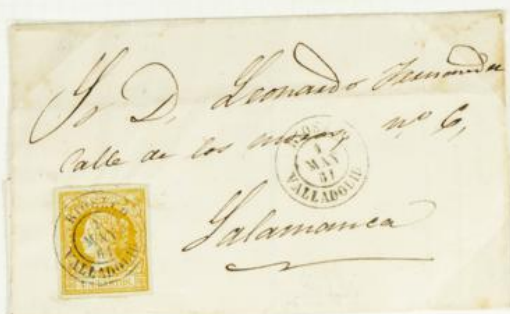 Sr D. Leonardo Hernandez
Calle de los nº 6,
RIOSECO
1
MAY
61
VALLADOLID
Salamanca
RIOSECO
MAY
61
VALLADOLID